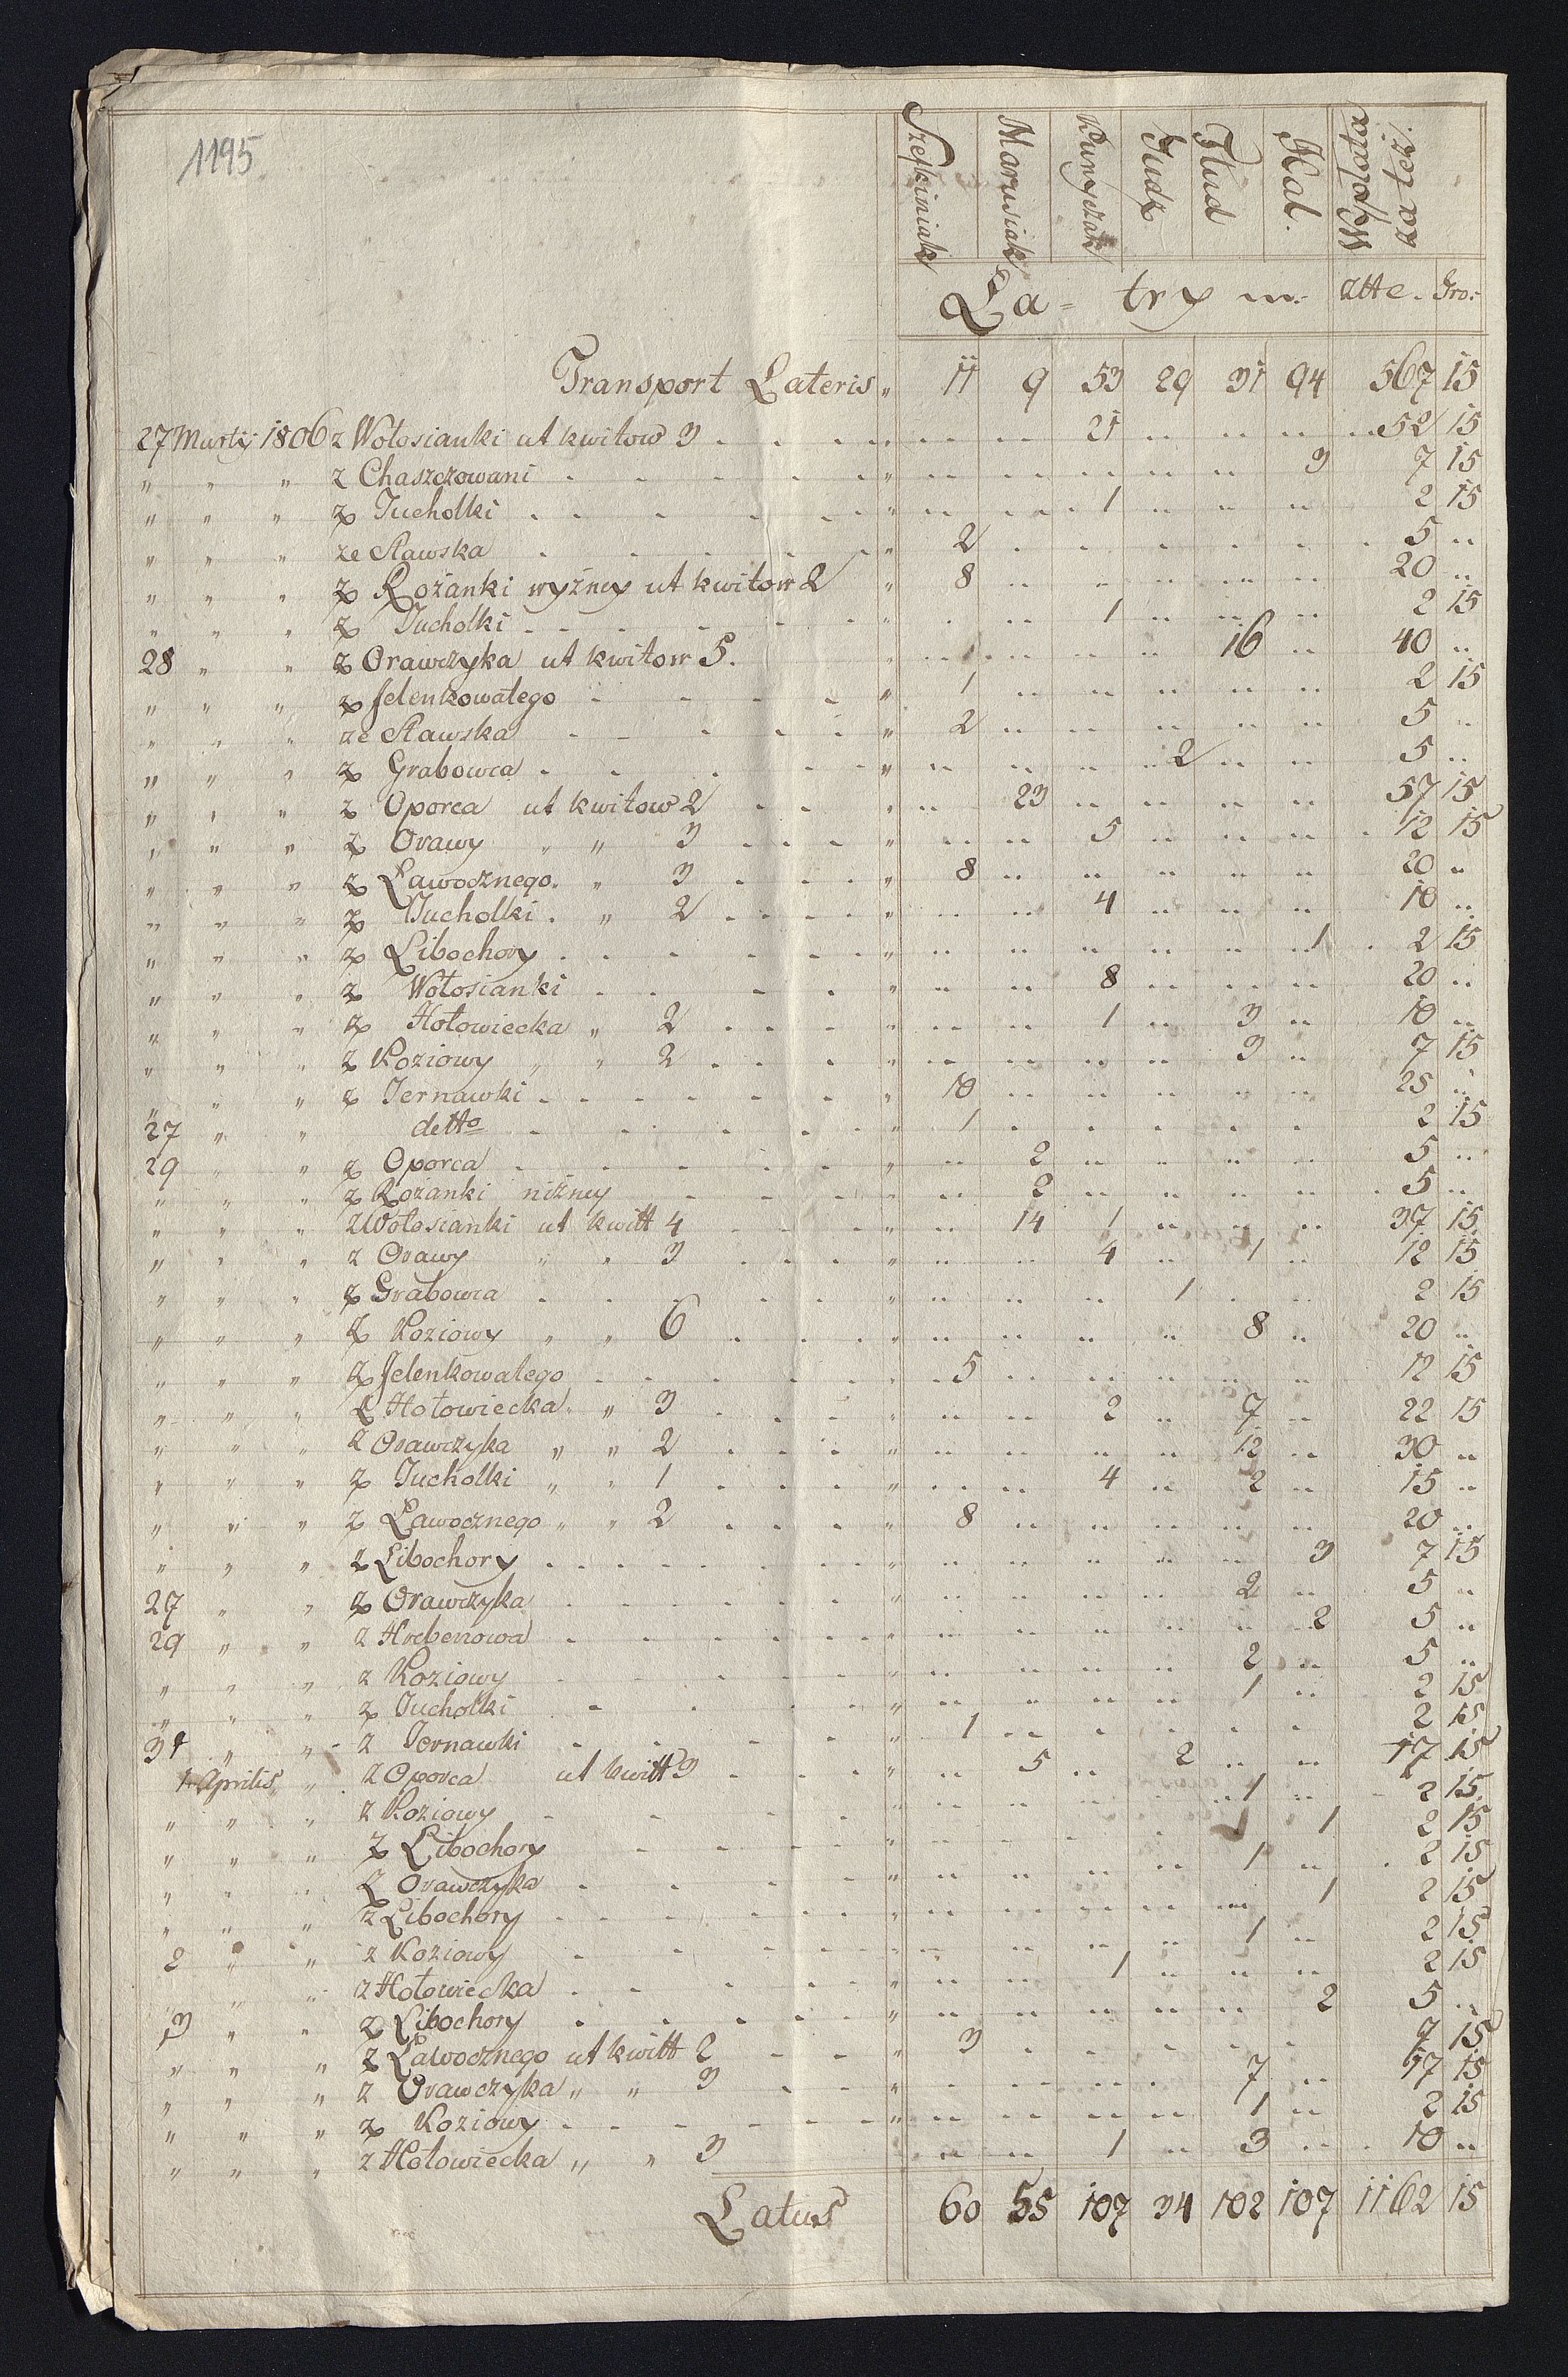 1195
Szefkiniak Marusiak Kunyczak Judz Hud Kal. Wypłata za też.
La= try m: złłe. Gro:
Transport Lateris „ 11 9 53 29 31 94 567 15
27 Martij 1806 z Wołosianki ut kwitow 3 21 52 15
„ „ „ z Chaszczowani 3 7 15
„ „ „ z Tucholki 1 2 15
„ „ „ ze Sławska 2 5 „
„ „ „ z Rożanki wyżney ut kwitow 2 8 20 „
„ „ „ z Tucholki 1 2 15
28 „ „ z Orawczyka ut kwitow 5. 16 40 „
„ „ „ z Jelenkowatego 1 2 15
„ „ „ ze Sławska 2 5 „
„ „ „ z Grabowca 2 5 „
„ „ „ z Oporca ut kwitow 2 23 57 15
„ „ „ z Orawy „ „ 3 5 12 15
„ „ „ z Ławocznego „ 3 8 20 „
„ „ „ z Tucholki „ 2 4 10 „
„ „ „ z Libochory 1 2 15
„ „ „ z Wołosianki 8 20 „
„ „ „ z Hołowiecka „ 2 1 3 10 „
„ „ „ z Koziowy „ „ 2 3 7 15
„ „ „ z Ternawki 10 25 „
27 „ „ detto 1 2 15
29 „ „ z Oporca 2 5 „
„ „ „ z Rożanki niżney 2 5 „
„ „ „ z Wołosianki ut kwitt 4 14 1 37 15
„ „ „ z Orawy „ „ 3 4 1 12 15
„ „ „ z Grabowca 1 2 15
„ „ „ z Koziowy „ „ 6 8 20 „
„ „ „ z Jelenkowatego 5 12 15
„ „ „ z Hołowiecka „ „ 3 2 7 22 15
„ „ „ z Orawczyka „ „ 2 12 30 „
„ „ „ z Tucholki „ „ 1 4 2 15 „
„ „ „ z Ławocznego „ „ 2 8 20 „
„ „ „ z Libochory 3 7 15
27 „ „ z Orawczyka 2 5 „
29 „ „ z Hrebenowa 2 5 „
„ „ „ z Koziowy 2 5 „
„ „ „ z Tucholki 1 2 15
31 „ „ z Ternawki 1 2 15
1 Aprilis „ z Oporca ut kwitt 3 5 2 17 15
„ „ „ z Koziowy 1 2 15
„ „ „ z Libochory 1 2 15
„ „ „ z Orawczyka 1 2 15
„ „ „ z Libochory 1 2 15
2 „ „ z Koziowy 1 2 15
„ „ „ z Hołowiecka 1 2 15
3 „ „ z Libochory 2 5 „
„ „ „ z Ławocznego ut kwitt 2 3 7 15
„ „ „ z Orawczyka „ „ 3 7 17 15
„ „ „ z Koziowy 1 2 15
„ „ „ z Hołowiecka „ „ 3 1 3 10 „
Latus 60 55 107 34 102 107 1162 15